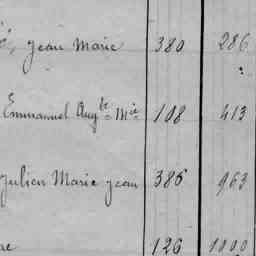 Jean Marie 380 286
Emmanuel Aug.te M.ie 108 413
Julien Marie Jean 386 963
126 1000